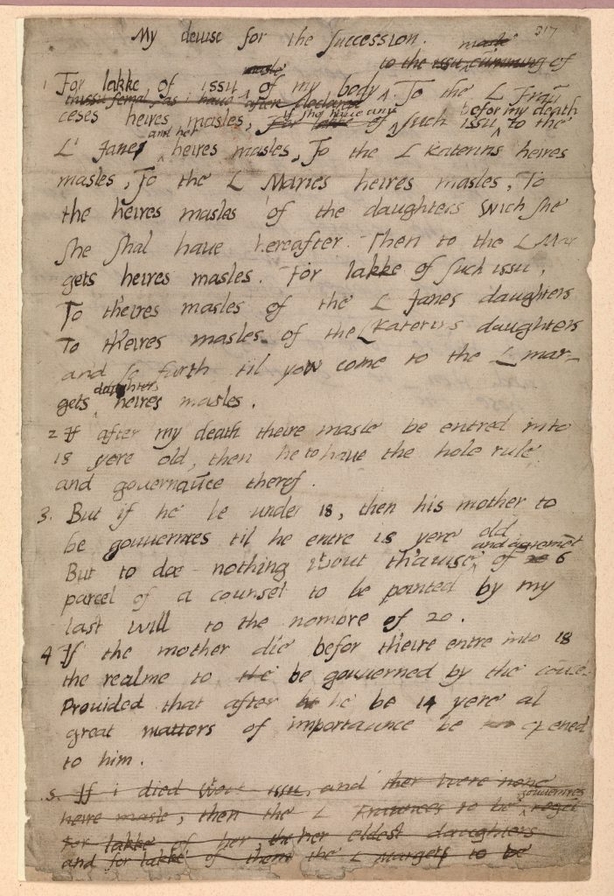 My deuise for the Succession.
317
1 For lakke of issu masle of my body masle to the issu cumming of
thissu femal, as i have after declared To the L Fran
ceses heires masles, For lakke of if she have any such issu befor my death to the
L' Janes and her heires masles, To the L Katerins heires
masles, To the L Maries heires masles, To
the heires masles of the daughters wich she
she shal have hereafter. Then to the L Mar
gets heires masles. For lakke of such issu,
To theires masles of the L Janes daughters
To theires masles of the L Katerins daughters
and so furth til yow come to the L mar-
gets daughters heires masles.
2 If after my death theire masle be entred into
18 yere old, then he to have the hole rule
and gouernaunce therof.
3. But if he be under 18, then his mother to
be gouuernres til he entre 18 yere old
But to doe nothing without thauise and agrement of 6
parcel of a counsel to be pointed by my
last will to the nombre of 20.
4 If the mother die befor theire entre into 18
the realme to be gouuerned by the councel
Prouided that after he be 14 yere al
great matters of importaunce be opened
to him.
5. If i died without issu, and ther were none
heire masle, then the L Fraunces to be gouuernres reget
For lakke of her the her eldest daughters
and for lakke of them the L Margets to be